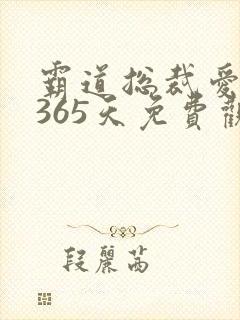 霸道总裁爱
365天免費觀
段麗茜